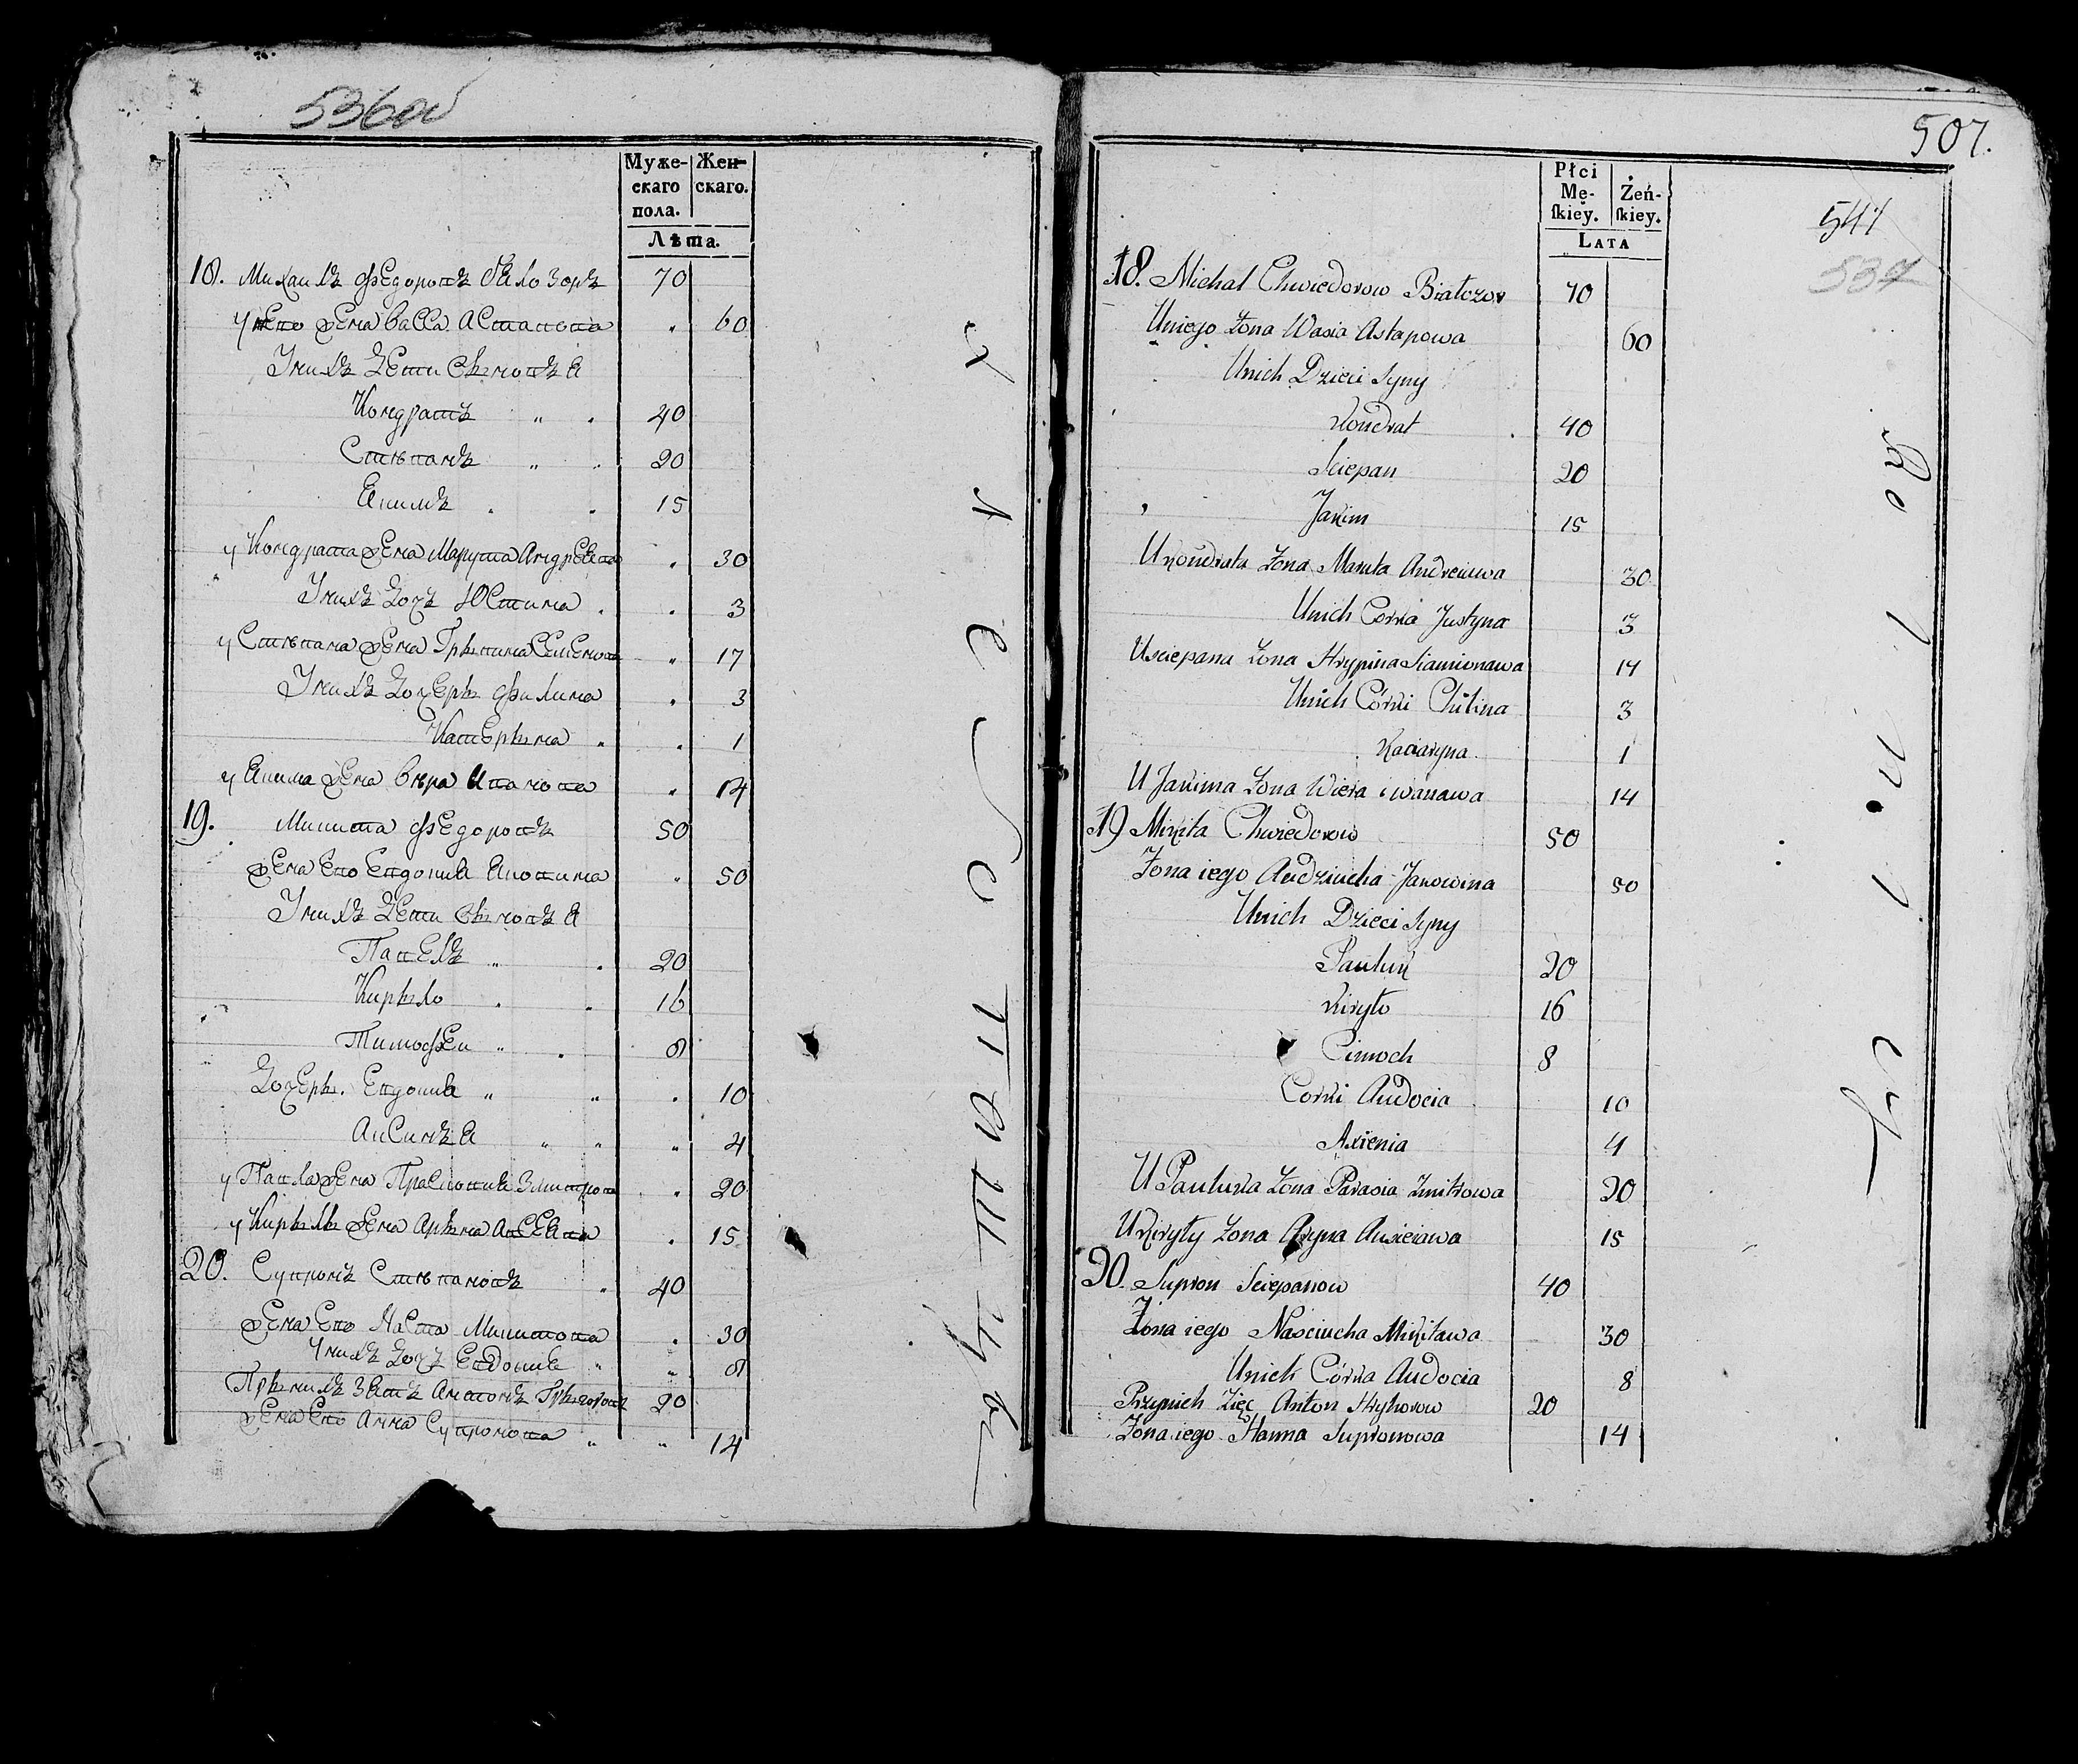 536об
Муже-
скаго
пола.
Жен-
скаго.
Лѣта.
18. Михаилъ Федоровъ Бялозоръ 70
у него жена Васса Астапова 60
У нихъ Дети сыновья
Кондратъ 40
Стѣпанъ 20
Якимъ 15
у Кондрата жена Марута Андреева 30
У нихъ дочь Юстина 3
у Стѣпана жена Грыпина Семенова 17
У нихъ дочеры Филина 3
Катерына 1
у Якима жена Вѣра Иванова 14
19. Микита Федоровъ 50
жена его Евдокия Яковина 50
У нихъ Дети сыновья
Павелъ 20
Кирыло 16
Тимофеи 8
Дочеры Евдокия 10
Аксинья 4
у Павла жена Прасковия Змитрова 20
у Кирылы жена Арына Авсеева 15
20. Супронъ Стѣпановъ 40
жена его Наста Микитова 30
У нихъ дочь Евдокия 8
Пры нихъ зять Антонъ Грыгоровъ 20
жена его Анна Супронова 14
507.
541
537
Płci
Mę-
skiey.
Żeń-
skiey.
LATA
18. Michał Chwiedorow Białozor 70
U niego Żona Wasia Astapowa 60
Unich Dzieci Syny
Kondrat 40
Sciepan 20
Jakim 15
U Kondrata Żona Maruta Andreiewa 30
Unich Córka Justyna 3
U Sciepana Żona Hrypina Siamionawa 17
Unich Córki Chilina 3
Kaciaryna 1
U Jakima Żona Wiera iwanawa 14
19 Mikita Chwiedorow 50
Żona iego Audziucha Jakowina 50
Unich Dzieci Syny
Pauluk 20
Kiryło 16
Cimoch 8
Corki Audocia 10
Axienia 4
U Pauluka Żona Parasia Zmitrowa 20
U Kiryły Żona Aryna Ausieiawa 15
20. Supron Sciepanow 40
Żona iego Nasciucha Mikitawa 30
Unich Córka Audocia 8
Przynich Zięć Anton Hryhorow 20
Żona iego Hanna Supronowa 14